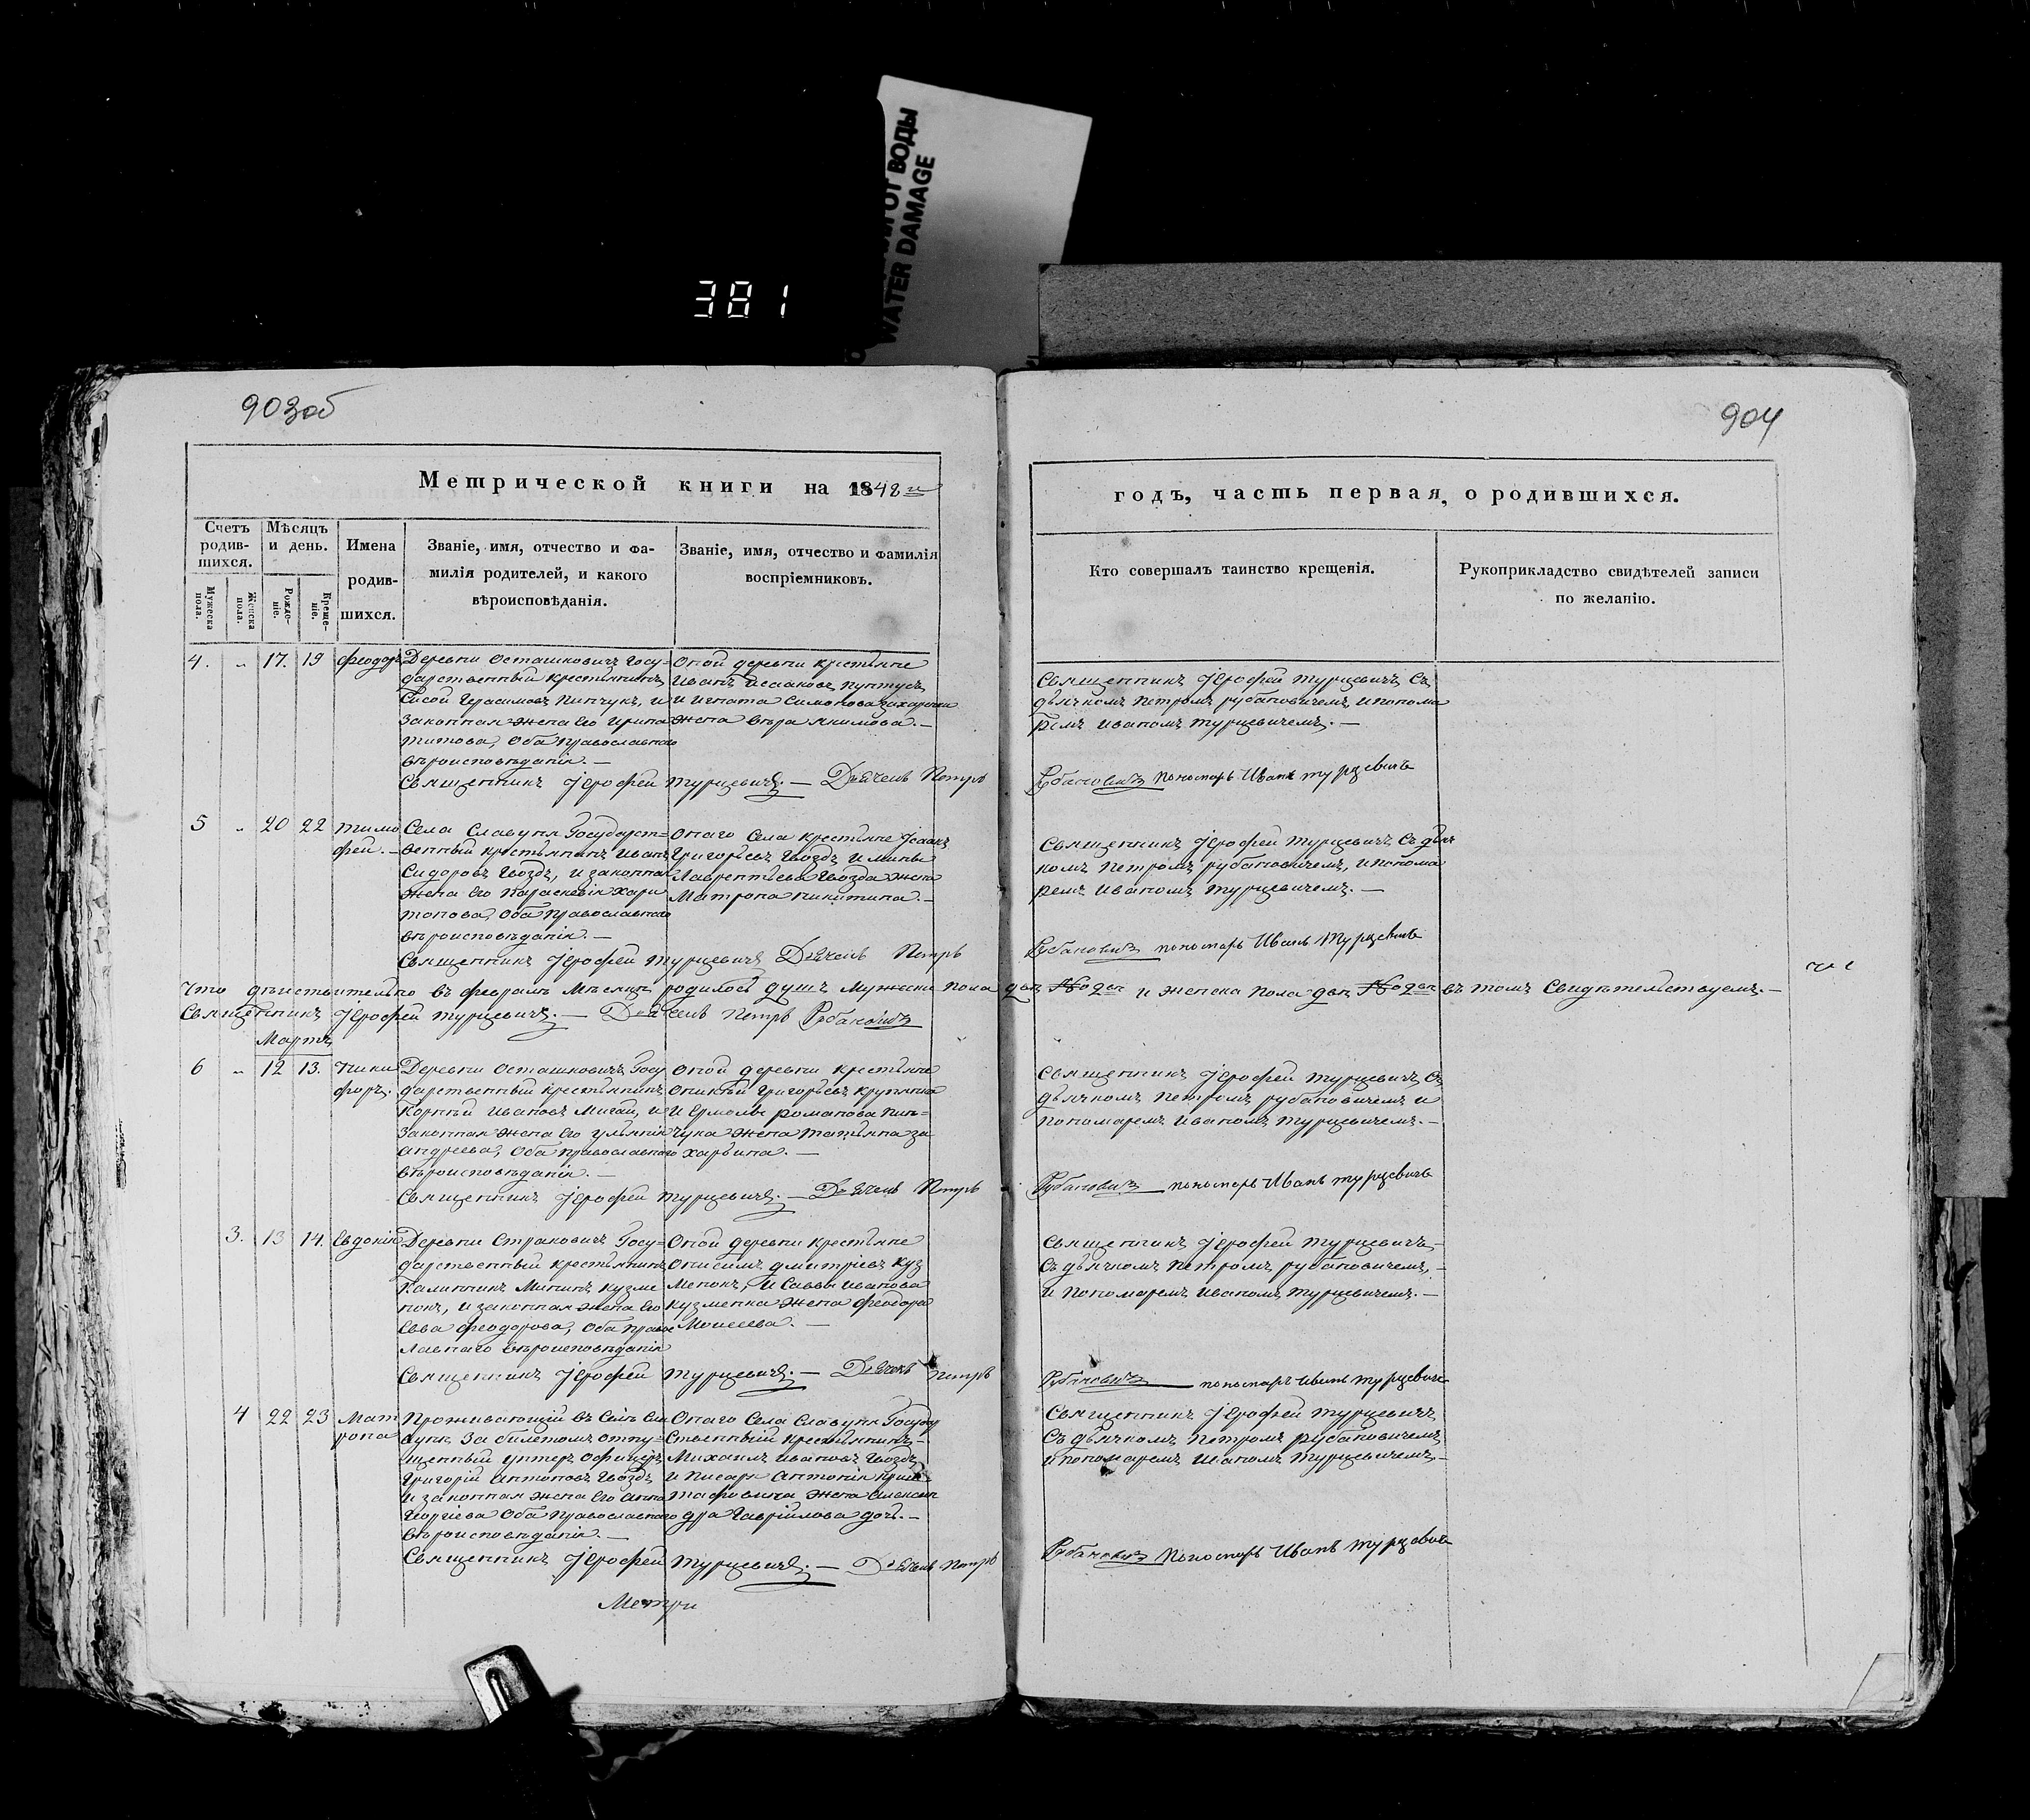 ОТ ВОДЫ
WATER DAMAGE
381
903об
904
Метрической книги на 1848й
годъ, часть первая, о родившихся.
Счетъ родившихся.
Мужеска пола.
Женска пола.
Мѣсяцъ и день.
Рожденіе.
Крещеніе.
Имена родившихся.
Званіе, имя, отчество и фамилія родителей, и какого вѣроисповѣданія.
Званіе, имя, отчество и фамилія воспріемниковъ.
Кто совершалъ таинство крещенія.
Рукоприкладство свидѣтелей записи по желанію.
4. „ 17. 19 Феодоръ
Деревни Осташковичъ Госу=
дарственный крестьянинъ
Сисой Герасимовъ Пинчукъ, и
законная жена его Ирина
Титова, оба православнаго
вѣроисповѣданія. —
Оной деревни крестьяне
Иванъ Исааковъ Пунтусъ
и Игната Симонова
жена Вѣра Якимова. —
Священникъ Іерофей Турцевичъ съ
дьячкомъ Петромъ Рубановичемъ и понома
ремъ Иваномъ Турцевичемъ. —
Священникъ Іерофей Турцевичъ. — Дьячекъ Петръ
Рубановичъ пономарь Иванъ Турцевичъ
5 „ 20 22 Тимо
фей. —
Села Славуня Государст=
венный крестьянинъ Иванъ
Сидоровъ Гвоздь, и законная
жена его Параскевія Хари
тонова, оба православнаго
вѣроисповѣданія. —
Онаго села крестьяне Ісаакъ
Григорьевъ Гвоздь и Мины
Лаврентьева Гвоздя жена
Матрона Никитина. —
Священникъ Іерофей Турцевичъ съ дьяч
комъ Петромъ Рубановичемъ, и понома
ремъ Иваномъ Турцевичемъ. —
Священникъ Іерофей Турцевичъ Дьячекъ Петръ
Рубановичъ пономарь Иванъ Турцевичъ
Что дѣйствительно въ февралѣ мѣсяцѣ родилось душъ мужеска пола двѣ № 2 и женска пола двѣ № 2 въ томъ свидѣтельствуемъ. —
Священникъ Іерофей Турцевичъ. — Дьячекъ Петръ Рубановичъ
Мартъ
6 „ 12 13. Ники
форъ.
Деревни Осташковичъ Госу
дарственный крестьянинъ
Корней Ивановъ Мигай, и
законная жена его Ульянія
Андреева, оба православнаго
вѣроисповѣданія. —
Оной деревни крестьяне
Григорьевъ
и Ермолы Романова Пин=
чука жена Татьяна За
харьина. —
Священникъ Іерофей Турцевичъ съ
дьячкомъ Петромъ Рубановичемъ и
пономаремъ Иваномъ Турцевичемъ. —
Священникъ Іерофей Турцевичъ. — Дьячекъ Петръ
Рубановичъ пономарь Иванъ Турцевичъ
3. 13 14. Евдокія
Деревни Страковичъ Госу=
дарственный крестьянинъ
Калинникъ Мининъ Кузме
нокъ, и законная жена его
Евва Феодорова, оба право
славнаго вѣроисповѣданія
Оной деревни крестьяне
Онисимъ Дмитріевъ Куз
менокъ, и Саввы Иванова
Кузменка жена Феодора
Моисеева. —
Священникъ Іерофей Турцевичъ —
съ дьячкомъ Петромъ Рубановичемъ, —
и пономаремъ Иваномъ Турцевичемъ. —
Священникъ Іерофей Турцевичъ. — Дьячекъ Петръ
Рубановичъ пономарь Иванъ Турцевичъ
4 22 23 Мат
рона
Проживающій въ селѣ Сла
вунѣ за билетомъ отпу=
щенный унтеръ офицеръ
Григорій Антоновъ Гвоздь
и законная жена его Анна
Георгіева оба православнаго
вѣроисповѣданія. —
Онаго села Славуня Государ
ственный крестьянинъ —
Михаилъ Ивановъ Гвоздь
и писаря Антонія
жена Алексан
дра Гавріилова дочь. —
Священникъ Іерофей Турцевичъ
съ дьячкомъ Петромъ Рубановичемъ
и пономаремъ Иваномъ Турцевичемъ, —
Священникъ Іерофей Турцевичъ. — Дьячекъ Петръ
Рубановичъ пономарь Иванъ Турцевичъ
Метри